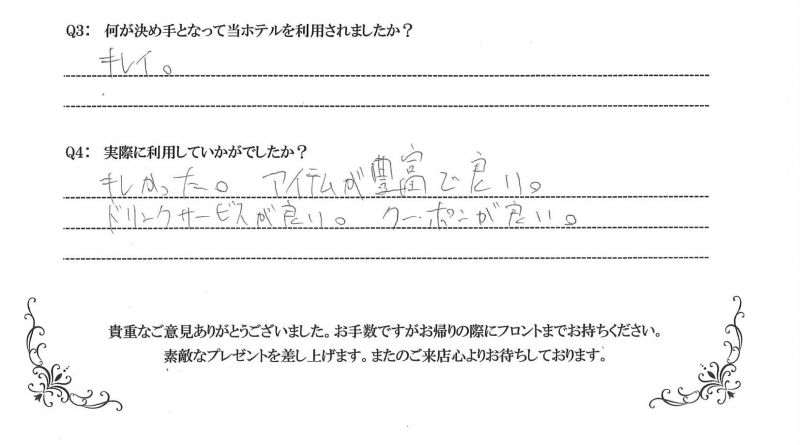 Q3： 何が決め手となって当ホテルを利用されましたか？
キレイ。
Q4： 実際に利用していかがでしたか？
キレかった。 アイテムが豊富で良い。
ドリンクサービスが良い。 クーポンが良い。
貴重なご意見ありがとうございました。お手数ですがお帰りの際にフロントまでお持ちください。
素敵なプレゼントを差し上げます。またのご来店心よりお待ちしております。